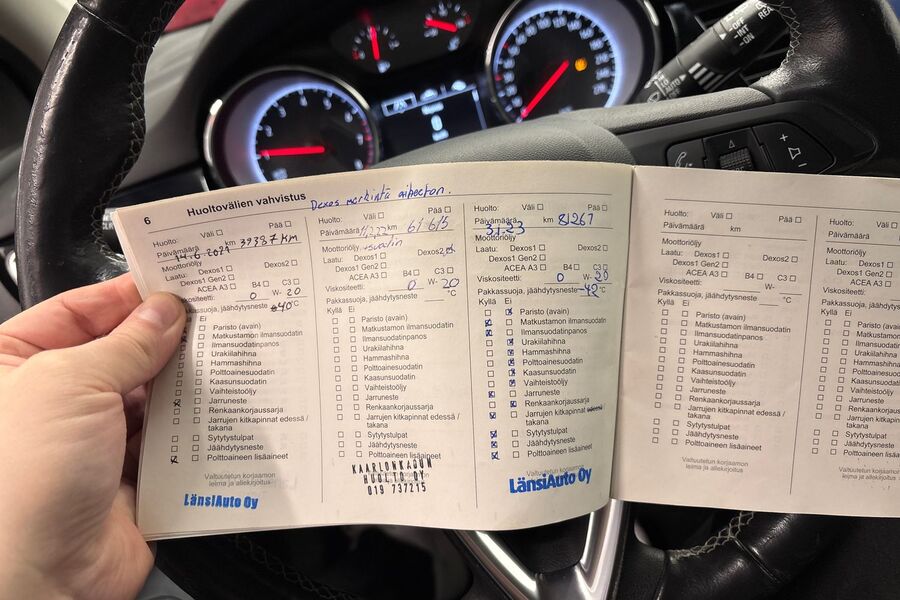 6 Huoltovälien vahvistus Dexos merkintä aiheeton.
Huolto: Väli Pää
Päivämäärä km 39387 KM
14.6.2021
Moottoriöljy
Laatu: Dexos1 Dexos2
Dexos1 Gen2
ACEA A3 B4 C3
Viskositeetti: 0 W- 20
Pakkassuoja, jäähdytysneste -40 °C
Ei
Paristo (avain)
Matkustamon ilmansuodatin
Ilmansuodatinpanos
Urakiilahihna
Hammashihna
Polttoainesuodatin
Kaasunsuodatin
Vaihteistoöljy
Jarruneste
Renkaankorjaussarja
Jarrujen kitkapinnat edessä /
takana
Sytytystulpat
Jäähdytysneste
Polttoaineen lisäaineet
Valtuutetun korjaamon
leima ja allekirjoitus
LänsiAuto Oy
Huolto: Väli Pää
Päivämäärä km 61 615
Moottoriöljy
Laatu: Dexos1 Dexos2
Dexos1 Gen2
ACEA A3 B4 C3
Viskositeetti: 0 W- 20
Pakkassuoja, jäähdytysneste °C
Kyllä Ei
Paristo (avain)
Matkustamon ilmansuodatin
Ilmansuodatinpanos
Urakiilahihna
Hammashihna
Polttoainesuodatin
Kaasunsuodatin
Vaihteistoöljy
Jarruneste
Renkaankorjaussarja
Jarrujen kitkapinnat edessä /
takana
Sytytystulpat
Jäähdytysneste
Polttoaineen lisäaineet
KAARLONKADUN
HUOLTO OY
019 737215
Huolto: Väli Pää
Päivämäärä km 81267
31.1.23
Moottoriöljy
Laatu: Dexos1 Dexos2
Dexos1 Gen2
ACEA A3 B4 C3
Viskositeetti: 0 W- 20
Pakkassuoja, jäähdytysneste -42 °C
Kyllä Ei
Paristo (avain)
Matkustamon ilmansuodatin
Ilmansuodatinpanos
Urakiilahihna
Hammashihna
Polttoainesuodatin
Kaasunsuodatin
Vaihteistoöljy
Jarruneste
Renkaankorjaussarja
Jarrujen kitkapinnat edessä /
takana
Sytytystulpat
Jäähdytysneste
Polttoaineen lisäaineet
Valtuutetun korjaamon
LänsiAuto Oy
Huolto: Väli Pää
Päivämäärä km
Moottoriöljy
Laatu: Dexos1 Dexos2
Dexos1 Gen2
ACEA A3 B4 C3
Viskositeetti: W-
Pakkassuoja, jäähdytysneste °C
Kyllä Ei
Paristo (avain)
Matkustamon ilmansuodatin
Ilmansuodatinpanos
Urakiilahihna
Hammashihna
Polttoainesuodatin
Kaasunsuodatin
Vaihteistoöljy
Jarruneste
Renkaankorjaussarja
Jarrujen kitkapinnat edessä /
takana
Sytytystulpat
Jäähdytysneste
Polttoaineen lisäaineet
Valtuutetun korjaamon
leima ja allekirjoitus
Huolto: Väli
Päivämäärä
Moottoriöljy
Laatu:
Viskositeetti:
Pakkassuoja,
Kyllä Ei
OFF
INT
ON